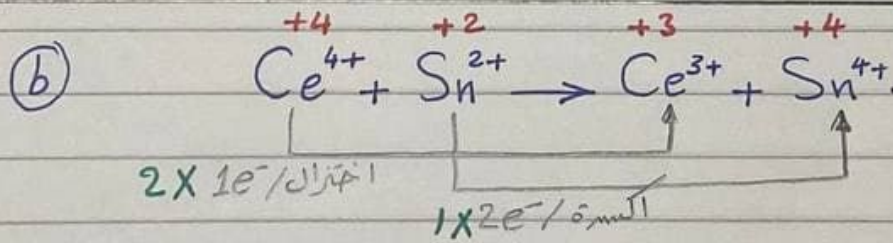 +4 +2 +3 +4
(b) Ce⁴⁺ + Sn²⁺ → Ce³⁺ + Sn⁴⁺
2 X 1e⁻/اختزال
1 X 2e⁻/اكسدة